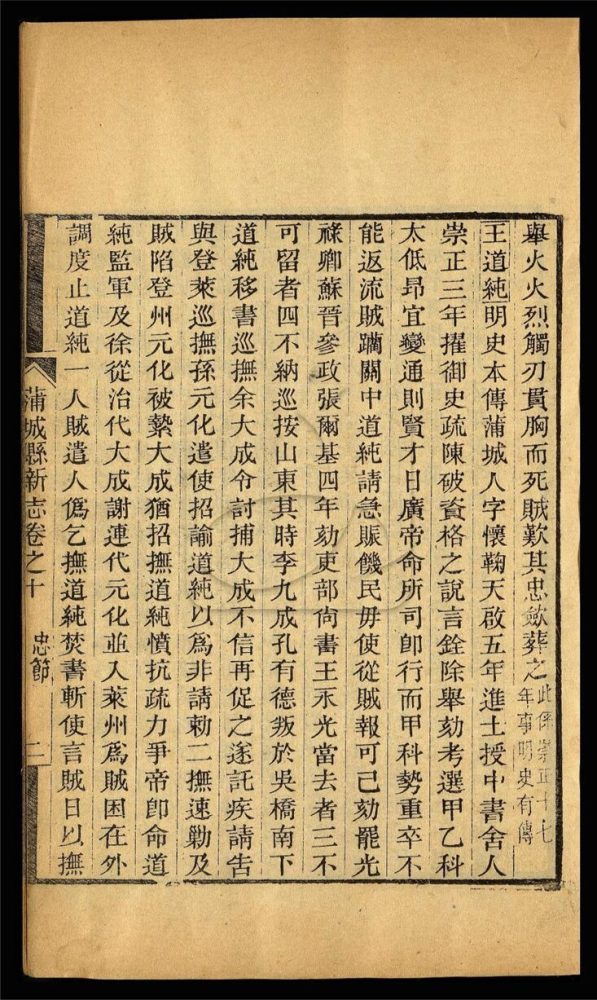 舉火火烈觸刃貫胸而死賊歎其忠斂葬之此係崇正十七
年事明史有傳
王道純明史本傳蒲城人字懷鞠天啟五年進士授中書舍人
崇正三年擢御史疏陳破資格之說言銓除舉劾考選甲乙科
太低昂宜變通則賢才日廣帝命所司卽行而甲科勢重卒不
能返流賊躪關中道純請急賑饑民毋使從賊報可已劾罷光
祿卿蘇晉參政張爾基四年劾吏部尚書王永光當去者三不
可留者四不納巡按山東其時李九成孔有德叛於吳橋南下
道純移書巡撫余大成令討捕大成不信再促之遂託疾請告
與登萊巡撫孫元化遣使招諭道純以爲非請勅二撫速勦及
賊陷登州元化被縶大成猶招撫道純憤抗疏力爭帝卽命道
純監軍及徐從治代大成謝璉代元化並入萊州爲賊困在外
調度止道純一人賊遣人僞乞撫道純焚書斬使言賊日以撫
蒲城縣新志卷之十 忠節 二